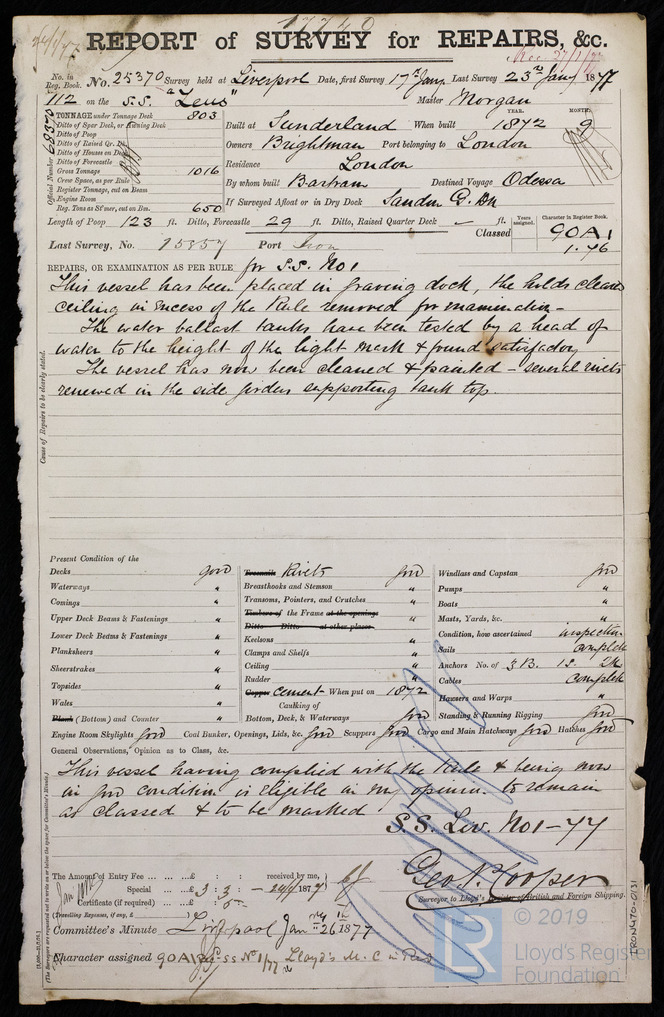 17740
24/1/77
REPORT of SURVEY for REPAIRS, &c.
Rec 27/1/77
No. in Reg. Book. No. 25370 Survey held at Liverpool Date, first Survey 17th Jany Last Survey 23rd Jany 1877
112 on the S.S. "Zeus" Master Morgan
TONNAGE under Tonnage Deck 803
Ditto of Spar Deck, or Awning Deck
Ditto of Poop
Ditto of Raised Qr. Dk
Ditto of Houses on Deck
Ditto of Forecastle
Gross Tonnage 1016
Crew Space, as per Rule
Register Tonnage, cut on Beam
Engine Room
Reg. Tons as St'mer, cut on Bm. 650
Official Number 68370
YEAR. MONTH.
Built at Sunderland When built 1872 9
Owners Brightman Port belonging to London
Residence London
By whom built Bartram Destined Voyage Odessa
If Surveyed Afloat or in Dry Dock Sandon G. Dk
Length of Poop 123 ft. Ditto, Forecastle 29 ft. Ditto, Raised Quarter Deck ft.
Years assigned. Character in Register Book.
Classed 90A1
1.76
Last Survey, No. 15357 Port
REPAIRS, OR EXAMINATION AS PER RULE, for S.S. No 1
This vessel has been placed in graving dock, the holds cleared
ceiling in excess of the Rule removed for examination -
The water ballast tanks have been tested by a head of
water to the height of the light mark & found satisfactory
The vessel has now been cleaned & painted - several rivets
renewed in the side girders supporting tank top.
Cause of Repairs to be clearly stated.
Present Condition of the
Decks good
Waterways "
Comings "
Upper Deck Beams & Fastenings "
Lower Deck Beams & Fastenings "
Planksheers "
Sheerstrakes "
Topsides "
Wales "
Plank (Bottom) and Counter "
Treenails Rivets good
Breasthooks and Stemson "
Transoms, Pointers, and Crutches "
Timbers of the Frame at the openings "
Ditto Ditto at other places
Keelsons "
Clamps and Shelfs "
Ceiling "
Rudder "
Copper cement When put on 1872
Caulking of
Bottom, Deck, & Waterways good
Windlass and Capstan good
Pumps "
Boats "
Masts, Yards, &c. "
Condition, how ascertained inspection
Sails complete
Anchors No. of 3 B. 1 S. 2 K
Cables complete
Hawsers and Warps "
Standing & Running Rigging good
Engine Room Skylights good Coal Bunker, Openings, Lids, &c. good Scuppers good Cargo and Main Hatchways good Hatches good
General Observations, Opinion as to Class, &c.
This vessel having complied with the Rule & being now
in good condition is eligible in my opinion to remain
as classed & to be marked
S.S. Liv. No 1-77
The Amount of Entry Fee ... £ : : received by me,
Special ... £ 3 : 3 : - 24/1/1877
Certificate (if required) .. £ : 5 :
(Travelling Expenses, if any, £ )
Geo N. Cooper
Surveyor to Lloyd's Register of British and Foreign Shipping.
Committee's Minute Liverpool Jany 26th 1877
Character assigned 90A1 SS No 1/77 Lloyd's M.C. in Red
IRON470-0131
© 2019
LR
Lloyd's Register
Foundation